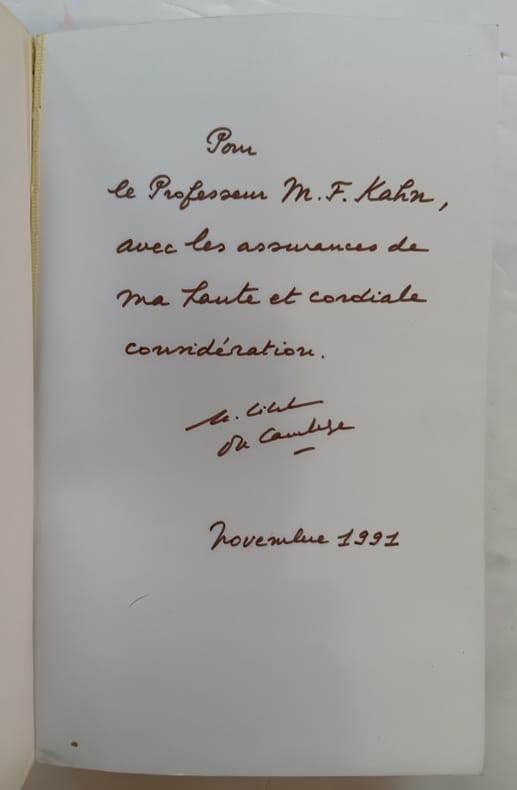 Pour
le Professeur M. F. Kahn,
avec les assurances de
ma haute et cordiale
considération.
novembre 1991